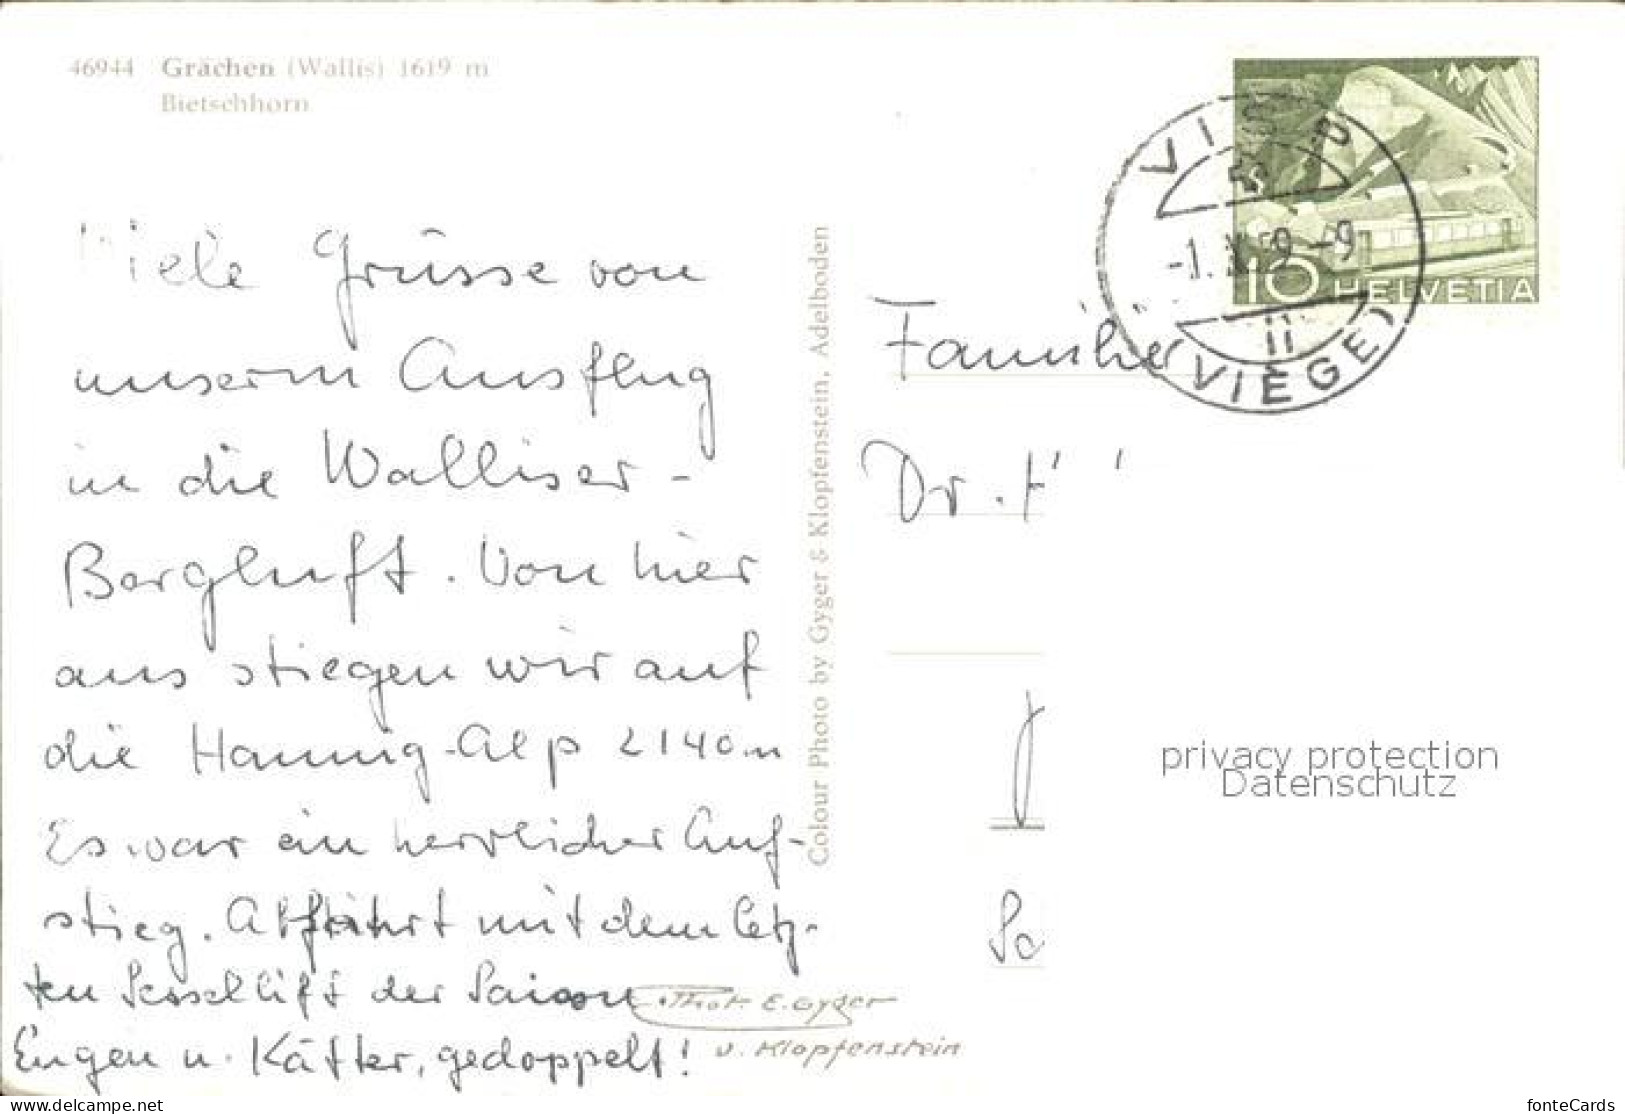 46944 Grächen (Wallis) 1619 m
Bietschhorn
Viele Grüsse von
unserm Ausflug
in die Walliser-
Bergluft. Von hier
aus stiegen wir auf
die Hannig-Alp 2140m
Es war ein herrlicher Auf-
stieg. Abfahrt mit dem letz-
ten Sesselift der Saison
Eugen u. Kätter, gedoppelt!
Colour Photo by Gyger & Klopfenstein, Adelboden
Phot. E. Gyger
u. Klopfenstein
10 HELVETIA
VISP
-1. X. 59 -9
(VIÈGE)
Familie
Dr. H
privacy protection
Datenschutz
www.delcampe.net
fonteCards